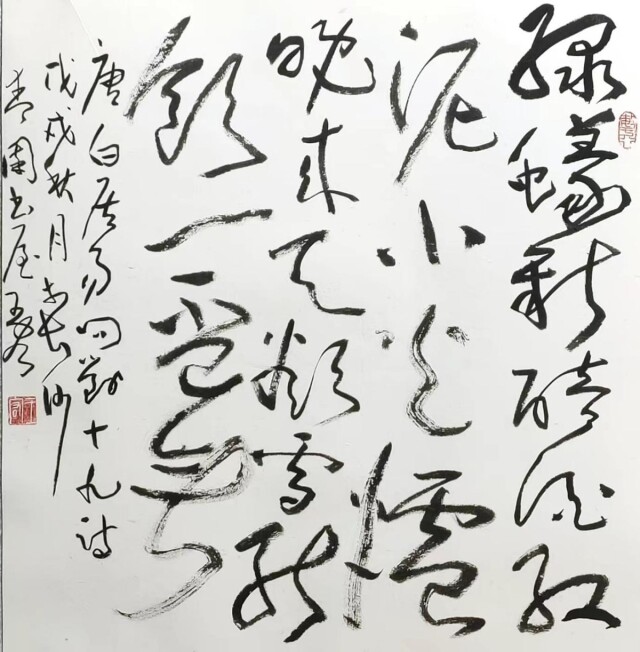 綠蟻新醅酒紅
泥小火爐
晚来天欲雪能
飲一盃無
唐白居易問劉十九詩
戊戌秋月於長沙
青園書屋